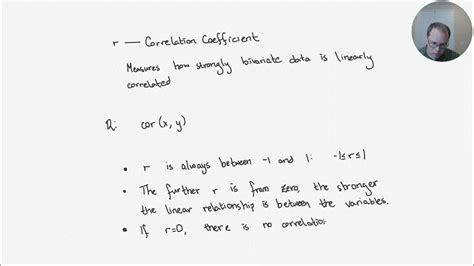 r — Correlation Coefficient
Measures how strongly bivariate data is linearly
correlated
R: cor(x, y)
• r is always between -1 and 1: -1≤r≤1
• The further r is from zero, the stronger
the linear relationship is between the variables.
• If r=0, there is no correlation